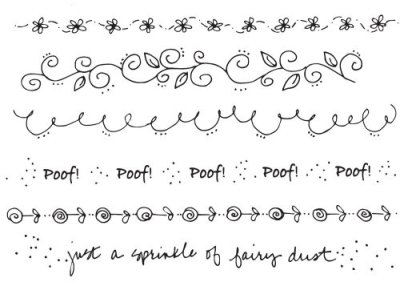 Poof! Poof! Poof! Poof! Poof!
just a sprinkle of fairy dust